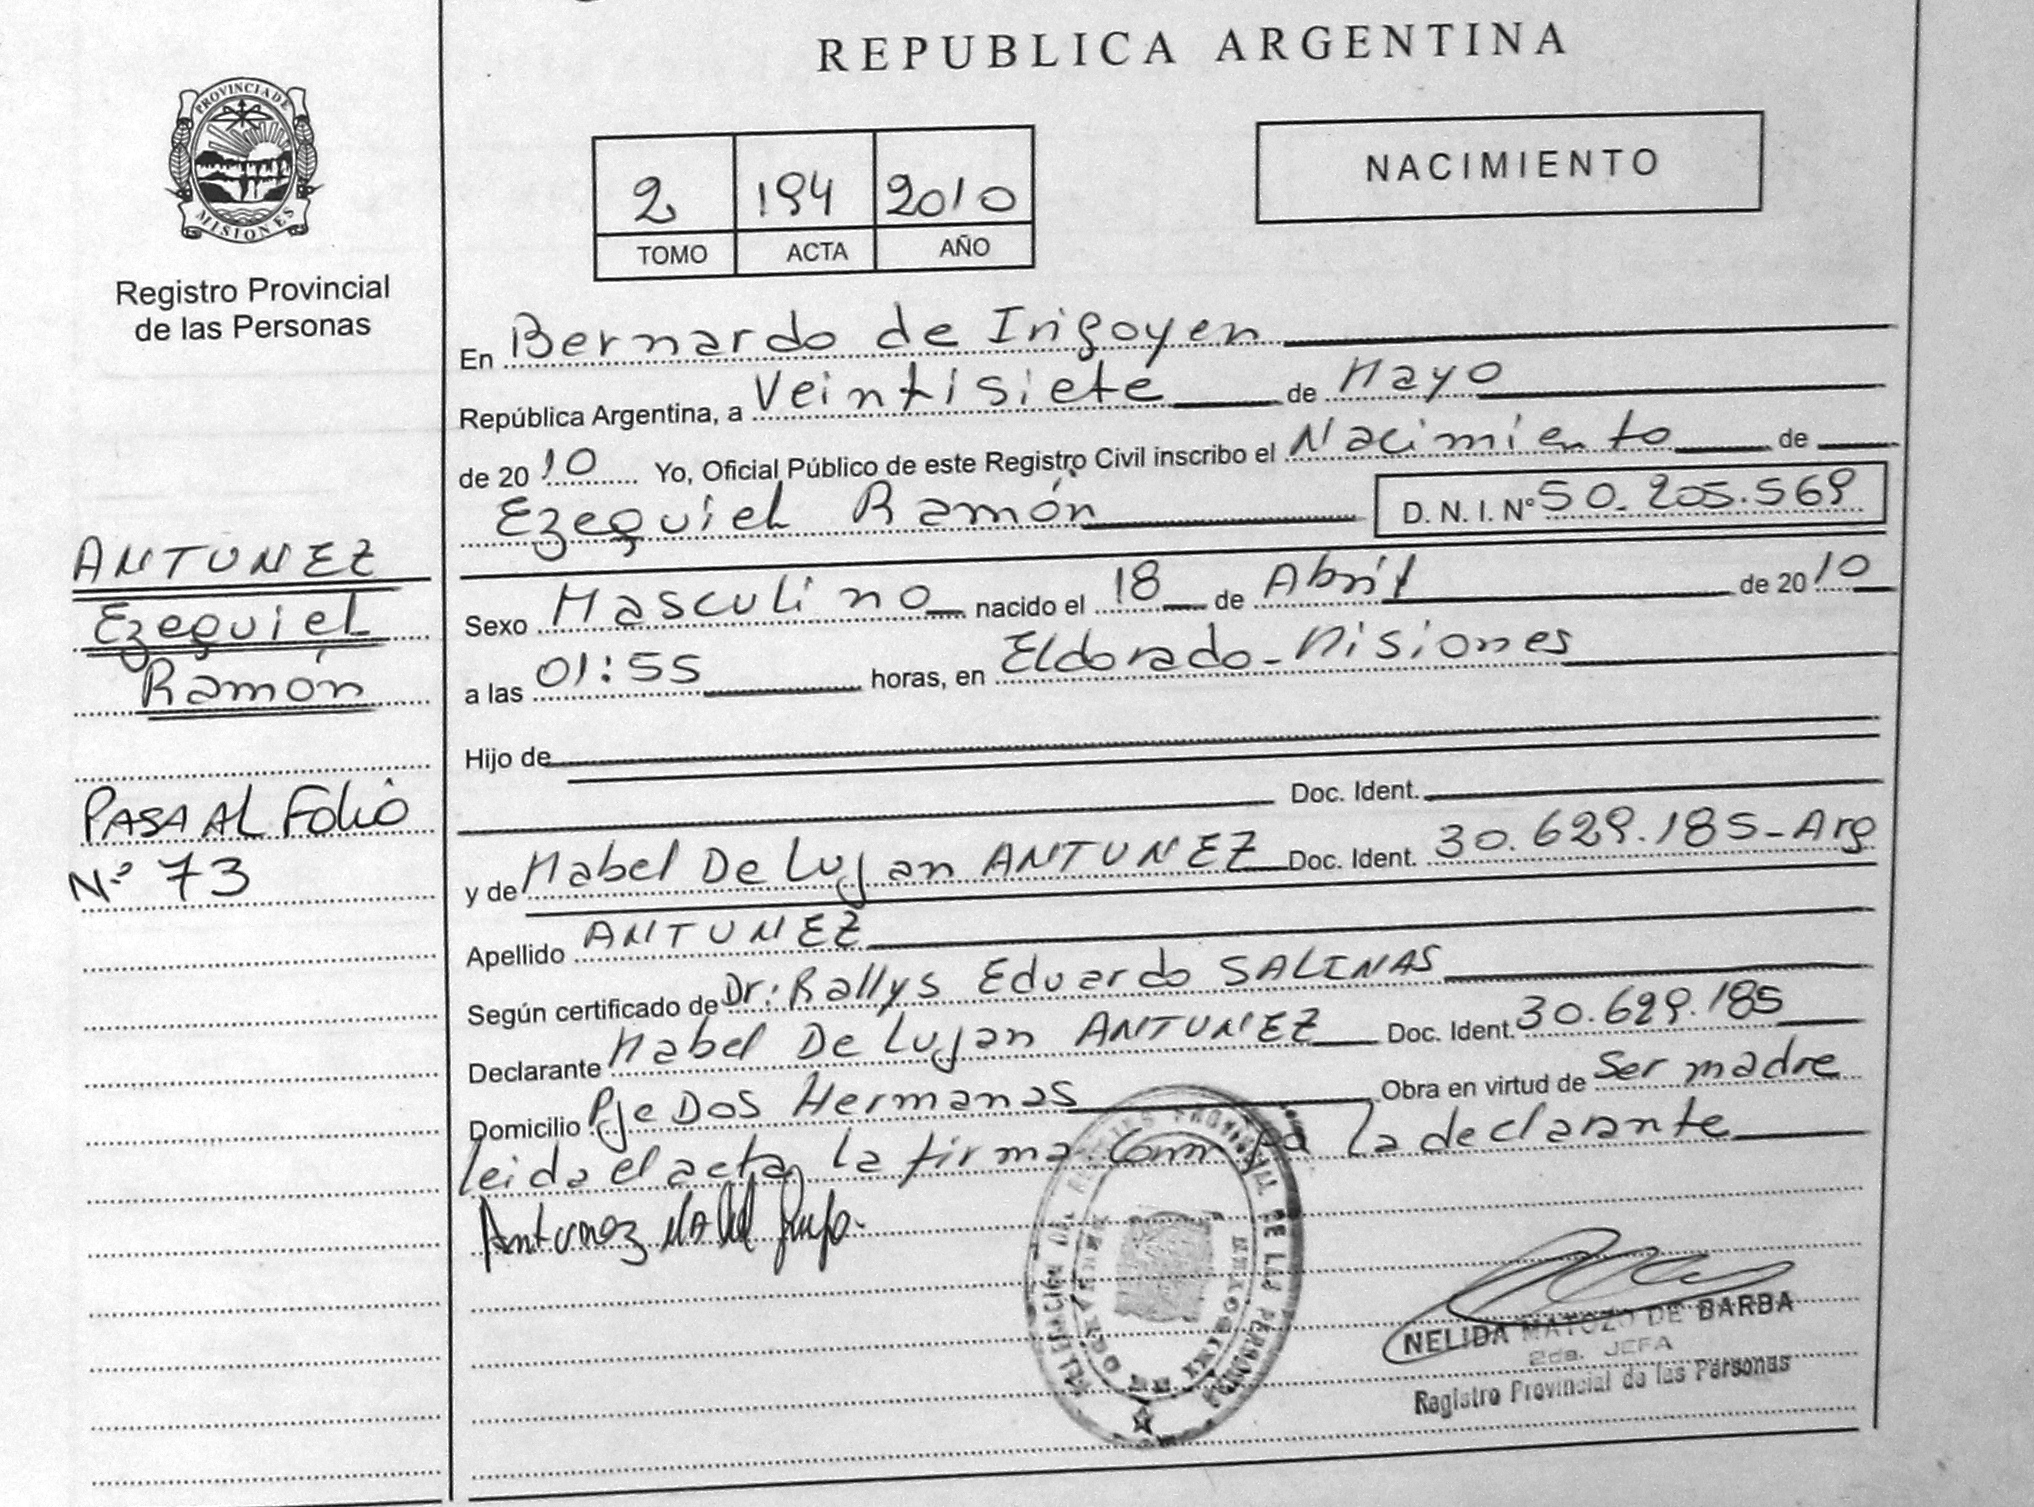 REPUBLICA ARGENTINA
PROVINCIA DE
MISIONES
Registro Provincial
de las Personas
2 194 2010
TOMO ACTA AÑO
NACIMIENTO
En Bernardo de Irigoyen
República Argentina, a Veintisiete de Mayo
de 2010 Yo, Oficial Público de este Registro Civil inscribo el Nacimiento de
Ezequiel Ramón D. N. I. N° 50.205.569
ANTUNEZ
Ezequiel
Ramón
Sexo Masculino nacido el 18 de Abril de 2010
a las 01:55 horas, en Eldorado-Misiones
Hijo de
Doc. Ident.
PASA AL Folio
Nº 73
y de Mabel De Lujan ANTUNEZ Doc. Ident. 30.629.185-Arg
Apellido ANTUNEZ
Según certificado de Dr: Rallys Eduardo SALINAS
Declarante Mabel De Lujan ANTUNEZ Doc. Ident. 30.629.185
Domicilio Pje Dos Hermanas Obra en virtud de Ser madre
leida el acta, la firma la declarante
Antunez
NELIDA MATOZO DE BARBA
2da. JEFA
Registro Provincial de las Personas